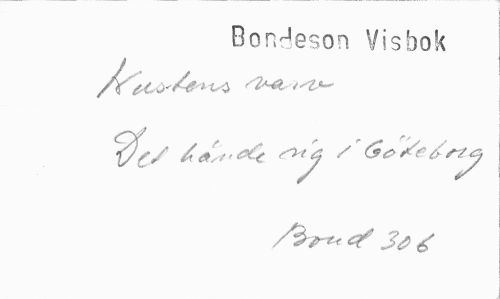 Bondeson Visbok
Kustens varv
Det hände sig i Göteborg
Bond 306